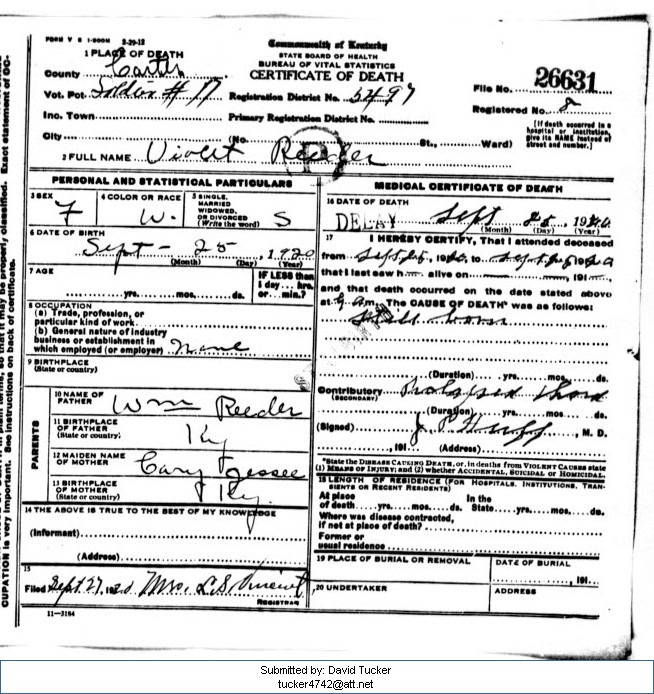 FORM V S 1-500M 2-29-12
Commonwealth of Kentucky
STATE BOARD OF HEALTH
BUREAU OF VITAL STATISTICS
CERTIFICATE OF DEATH
1 PLACE OF DEATH
County Carter
Vot. Pct. Soldier # 17 Registration District No. 5497
File No. 26631
Inc. Town Primary Registration District No.
Registered No. 8
City (No. St., Ward)
[If death occurred in a hospital or institution, give its NAME instead of street and number.]
2 FULL NAME Violet Reeder
PERSONAL AND STATISTICAL PARTICULARS
3 SEX F
4 COLOR OR RACE W.
5 SINGLE, MARRIED WIDOWED, OR DIVORCED (Write the word) S
6 DATE OF BIRTH
Sept - 25, 1920
(Month) (Day) (Year)
7 AGE
yrs. mos. ds.
IF LESS than 1 day... hrs. or... min.?
8 OCCUPATION
(a) Trade, profession, or
particular kind of work
(b) General nature of industry
business or establishment in
which employed (or employer) None
9 BIRTHPLACE
(State or country)
PARENTS
10 NAME OF FATHER Wm Reeder
11 BIRTHPLACE OF FATHER (State or country) Ky
12 MAIDEN NAME OF MOTHER Jessee
13 BIRTHPLACE OF MOTHER (State or country) Ky.
14 THE ABOVE IS TRUE TO THE BEST OF MY KNOWLEDGE
(Informant)
(Address)
15
Filed Sept 27, 1920 Mrs. L.S.
REGISTRAR
11-3184
MEDICAL CERTIFICATE OF DEATH
16 DATE OF DEATH
DELAY Sept 25, 1920
(Month) (Day) (Year)
17 I HEREBY CERTIFY, That I attended deceased
from Sept 25, 1920, to Sept 25 1920
that I last saw h alive on , 191
and that death occurred on the date stated above
at 9 Am. The CAUSE OF DEATH* was as follows:
Still born
(Duration) yrs. mos. ds.
Contributory Prolapsed
(SECONDARY)
(Duration) yrs. mos. ds.
(Signed) J. P. , M. D.
, 191 (Address)
*State the DISEASE CAUSING DEATH, or, in deaths from VIOLENT CAUSES state
(1) MEANS OF INJURY; and (2) whether ACCIDENTAL, SUICIDAL or HOMICIDAL.
18 LENGTH OF RESIDENCE (FOR HOSPITALS, INSTITUTIONS, TRANSIENTS OR RECENT RESIDENTS)
At place of death yrs. mos. ds. In the State yrs. mos. ds.
Where was disease contracted,
if not at place of death?
Former or
usual residence
19 PLACE OF BURIAL OR REMOVAL
DATE OF BURIAL
, 191
20 UNDERTAKER
ADDRESS
Submitted by: David Tucker
tucker4742@att.net